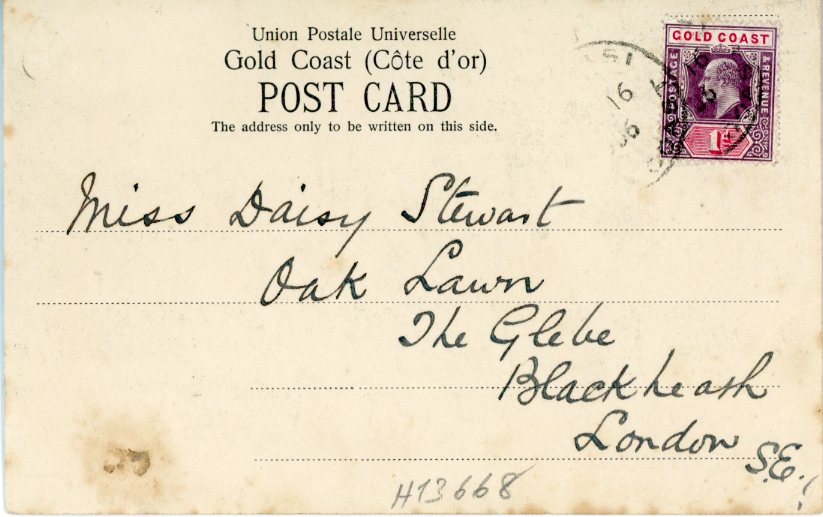 Union Postale Universelle
Gold Coast (Côte d'or)
POST CARD
The address only to be written on this side.
GOLD COAST
POSTAGE
& REVENUE
1D
16
06
Miss Daisy Stewart
Oak Lawn
The Glebe
Blackheath
London
S.E.
H13668